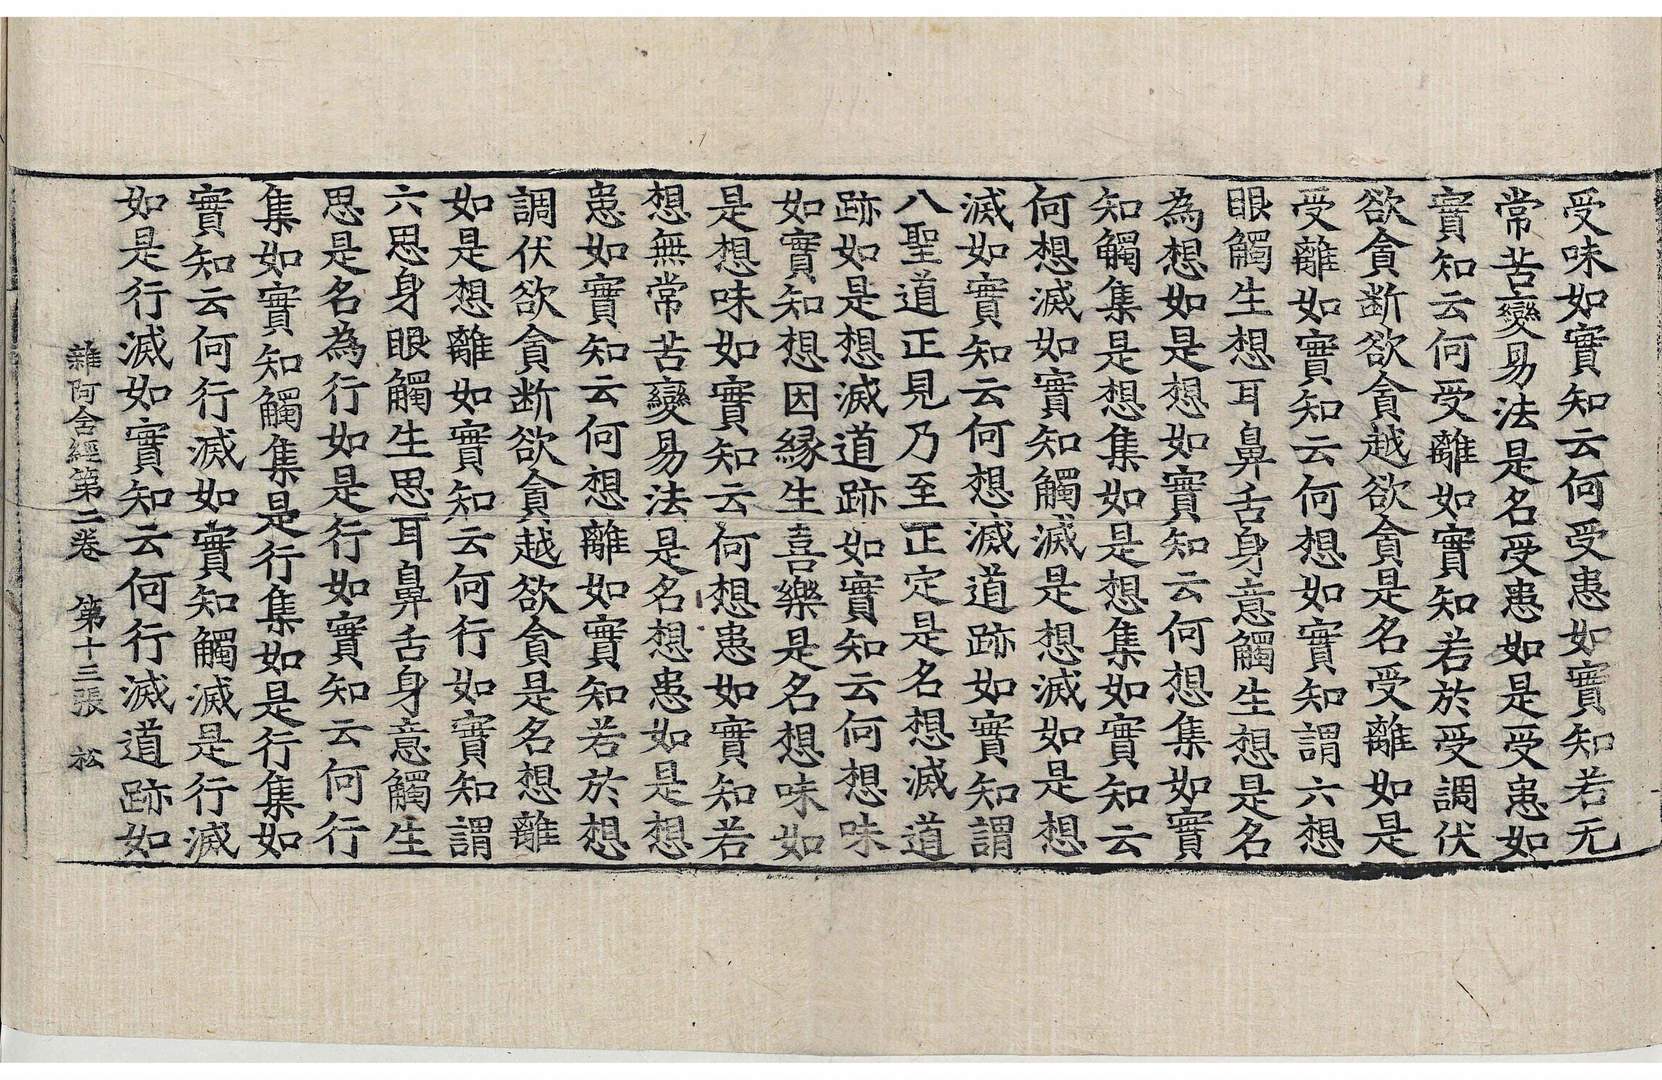 受味如實知云何受患如實知若无
常苦變易法是名受患如是受患如
實知云何受離如實知若於受調伏
欲貪断欲貪越欲貪是名受離如是
受離如實知云何想如實知謂六想
眼觸生想耳鼻舌身意觸生想是名
為想如是想如實知云何想集如實
知觸集是想集如是想集如實知云
何想滅如實知觸滅是想滅如是想
滅如實知云何想滅道跡如實知謂
八聖道正見乃至正定是名想滅道
跡如是想滅道跡如實知云何想味
如實知想因緣生喜樂是名想味如
是想味如實知云何想患如實知若
想無常苦變易法是名想患如是想
患如實知云何想離如實知若於想
調伏欲貪断欲貪越欲貪是名想離
如是想離如實知云何行如實知謂
六思身眼觸生思耳鼻舌身意觸生
思是名為行如是行如實知云何行
集如實知觸集是行集如是行集如
實知云何行滅如實知觸滅是行滅
如是行滅如實知云何行滅道跡如
雜阿含經第二卷　第十三張　松